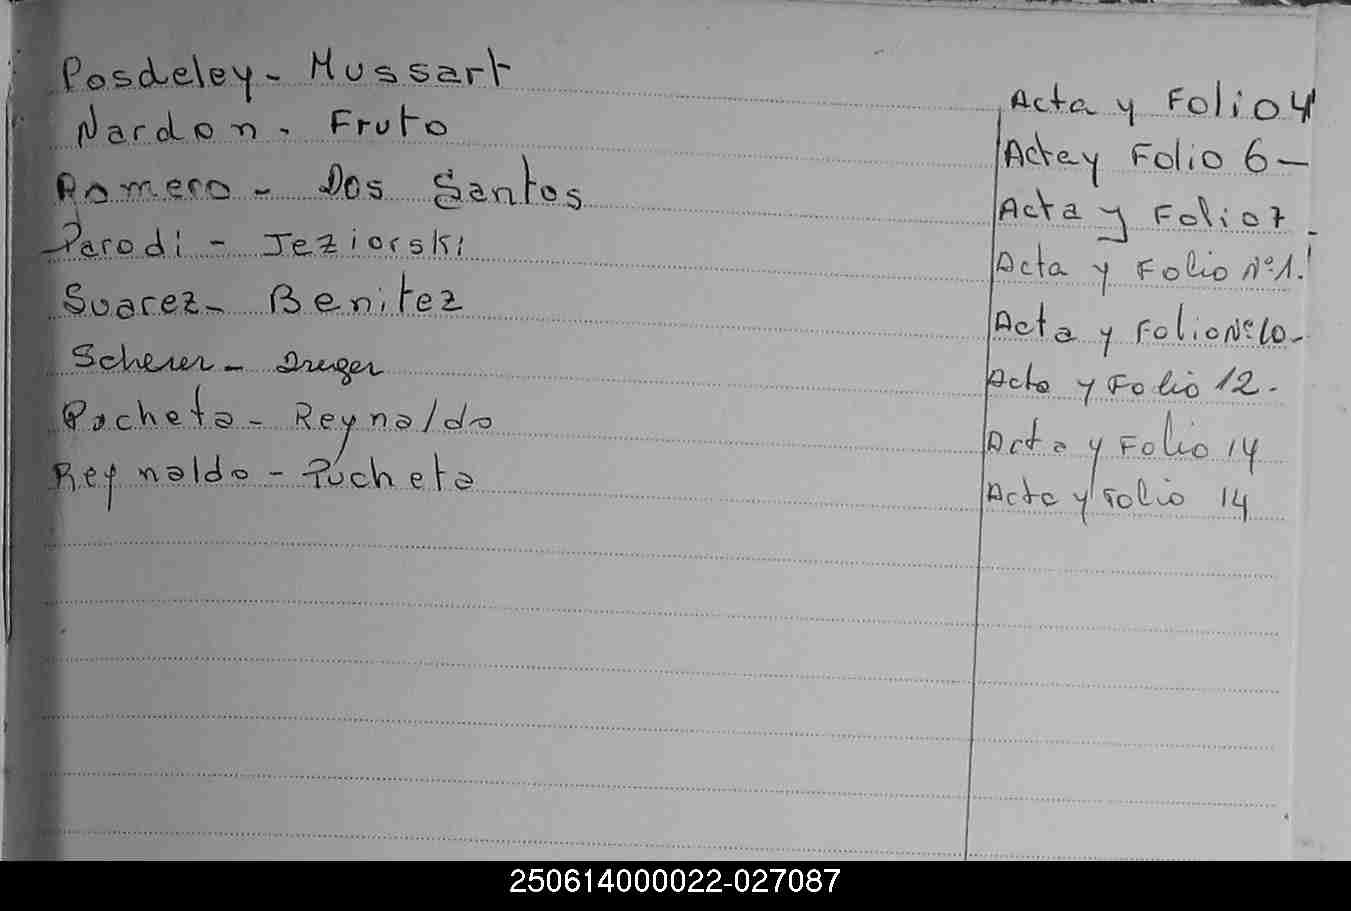 Posdeley - Mussart Acta y Folio 4
Nardon - Fruto Acta y Folio 6 -
Romero - Dos Santos Acta y Folio 7 -
Parodi - Jeziorski Acta y Folio Nº 1.
Suarez - Benitez Acta y Folio Nº 10 -
Scherer - Dreger Acta y Folio 12 -
Pucheta - Reynaldo Acta y Folio 14
Reynaldo - Pucheta Acta y Folio 14
250614000022-027087